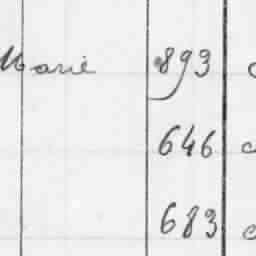 Marie 893
646
683